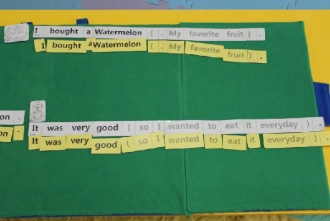 I bought a Watermelon ( . My favorite fruit ) .
I bought a Watermelon ( . My favorite fruit ) .
on .
It was very good ( so I wanted to eat it everyday ) .
on .
It was very good ( so I wanted to eat it everyday ) .